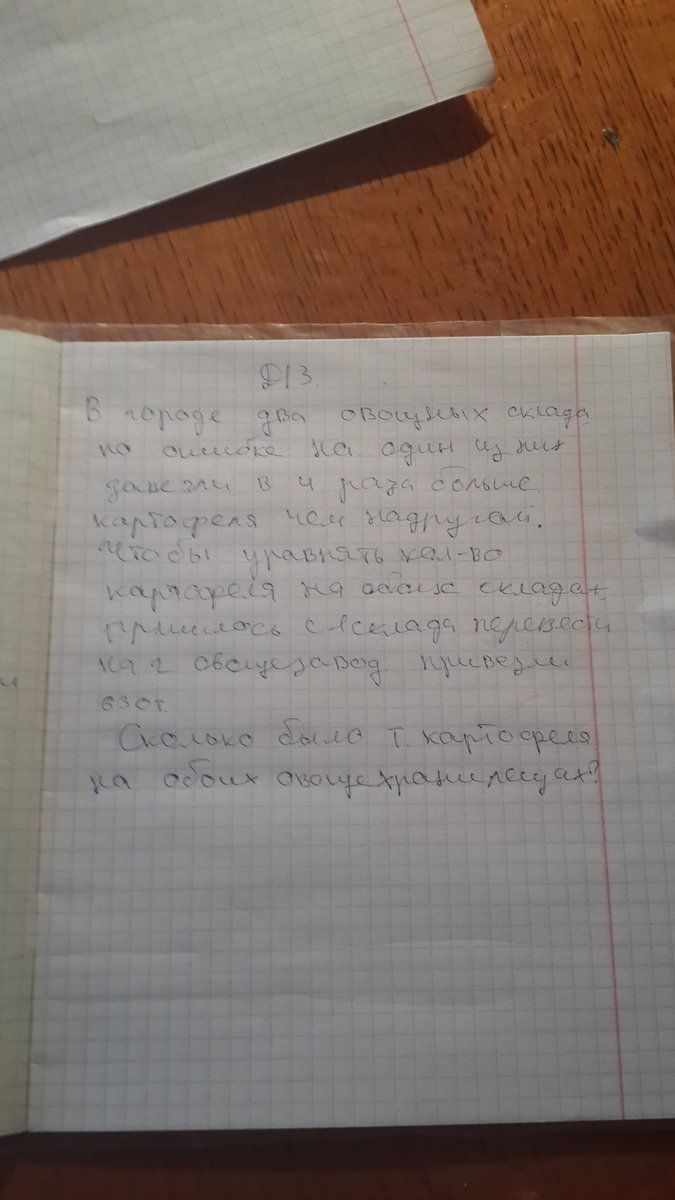 Д/З.
В городе два овощных склада
по ошибке на один из них
завезли в 4 раза больше
картофеля чем на другой.
Чтобы уравнять кол-во
картофеля на обоих складах
пришлось с 1 склада перевести
на 2 овощезавод привезли
630т.
Сколько было т. картофеля
на обоих овощехранилещах?